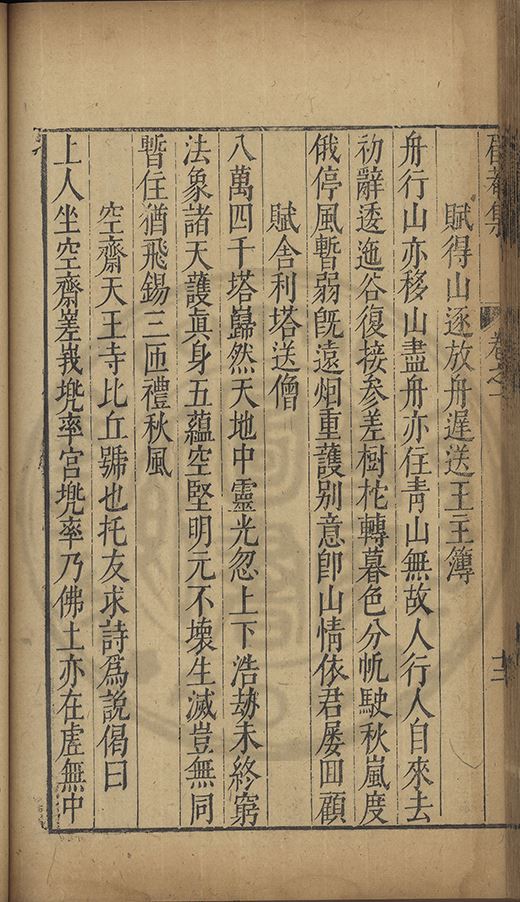 集 卷之一
賦得山逐放舟遲送王主簿
舟行山亦移山盡舟亦住青山無故人行人自來去
初辭逶迤谷復接參差樹柁轉暮色分帆駛秋嵐度
俄停風暫弱旣遠烟重䕶别意卽山情依君屡囬顧
賦舍利塔送僧
八萬四千塔巋然天地中靈光忽上下浩劫未終窮
法象諸天䕶眞身五蘊空堅明元不壞生滅豈無同
暫住猶飛錫三匝禮秋風
空齋天王寺比丘號也托友求詩爲說偈曰
上人坐空齋嵳峩兠率宮兠率乃佛土亦在虛無中